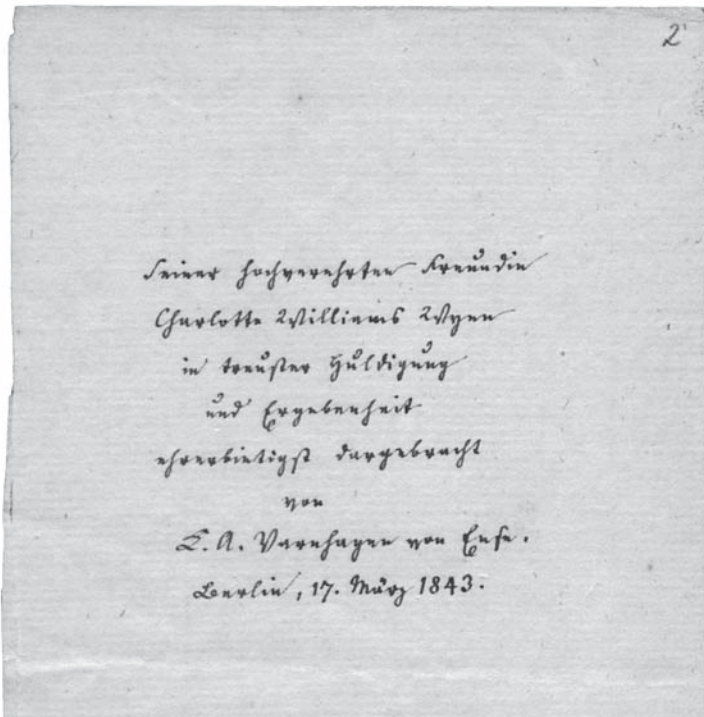 2
Seiner hochverehrten Freundin
Charlotte Williams Wynn
in treuster Huldigung
und Ergebenheit
ehrerbietigst dargebracht
von
K. A. Varnhagen von Ense.
Berlin, 17. März 1843.